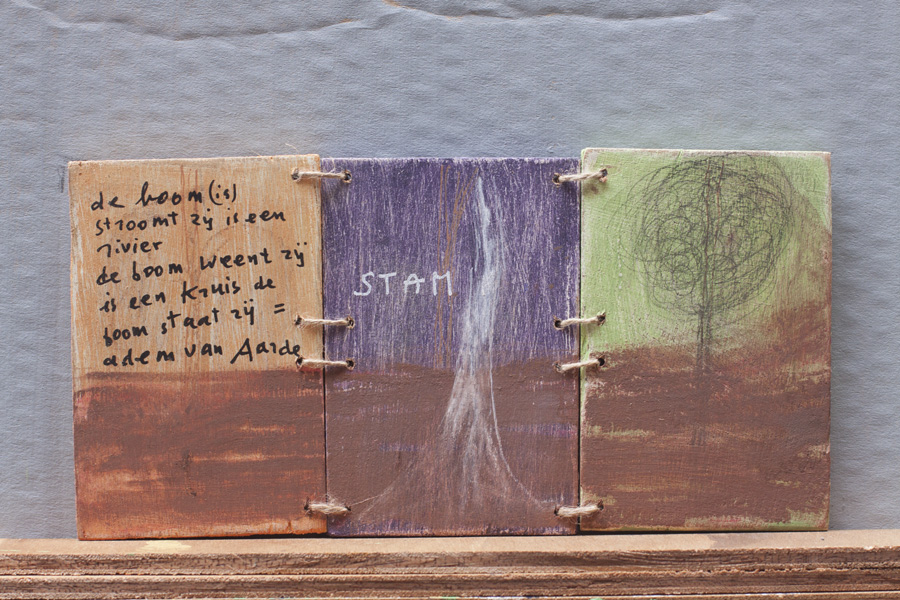 de boom (is)
stroomt zij is een
rivier
de boom weent zij
is een kruis de
boom staat zij =
adem van Aarde
STAM